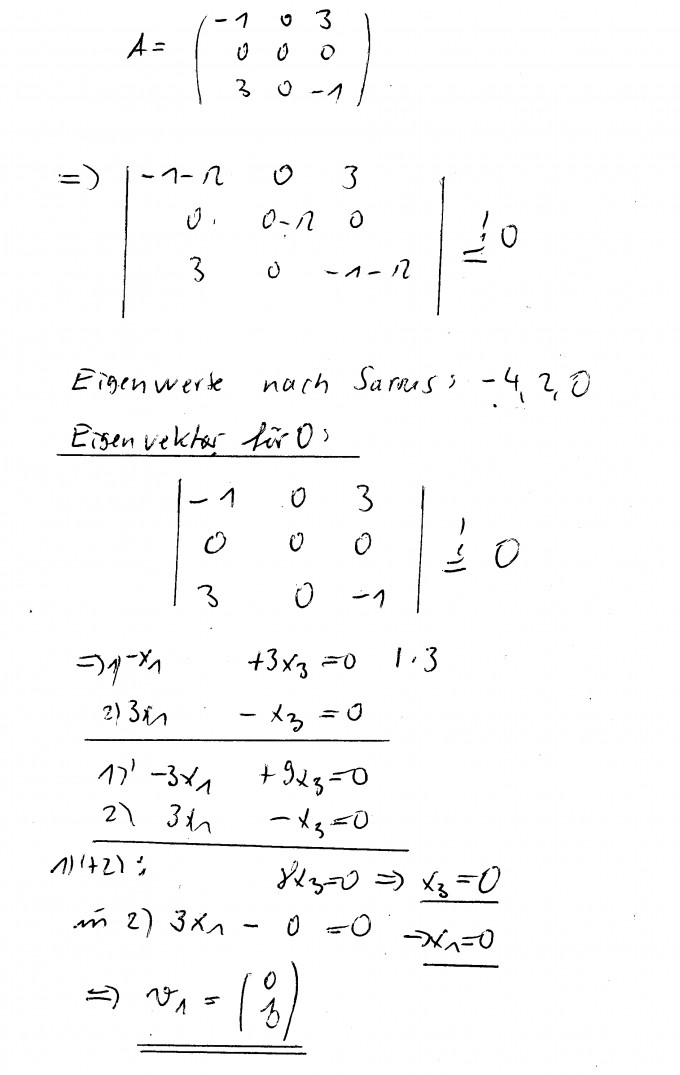 A = ( -1 0 3
0 0 0
3 0 -1 )
=> | -1-λ 0 3
0 0-λ 0
3 0 -1-λ | =! 0
Eigenwerte nach Sarrus: -4, 2, 0
Eigenvektor für 0:
| -1 0 3
0 0 0
3 0 -1 | =! 0
=> 1) -x₁ +3x₃ = 0 | · 3
2) 3x₁ - x₃ = 0
1)' -3x₁ + 9x₃ = 0
2) 3x₁ - x₃ = 0
1)'+2): 8x₃ = 0 => x₃ = 0
in 2) 3x₁ - 0 = 0 → x₁ = 0
=> v₁ =